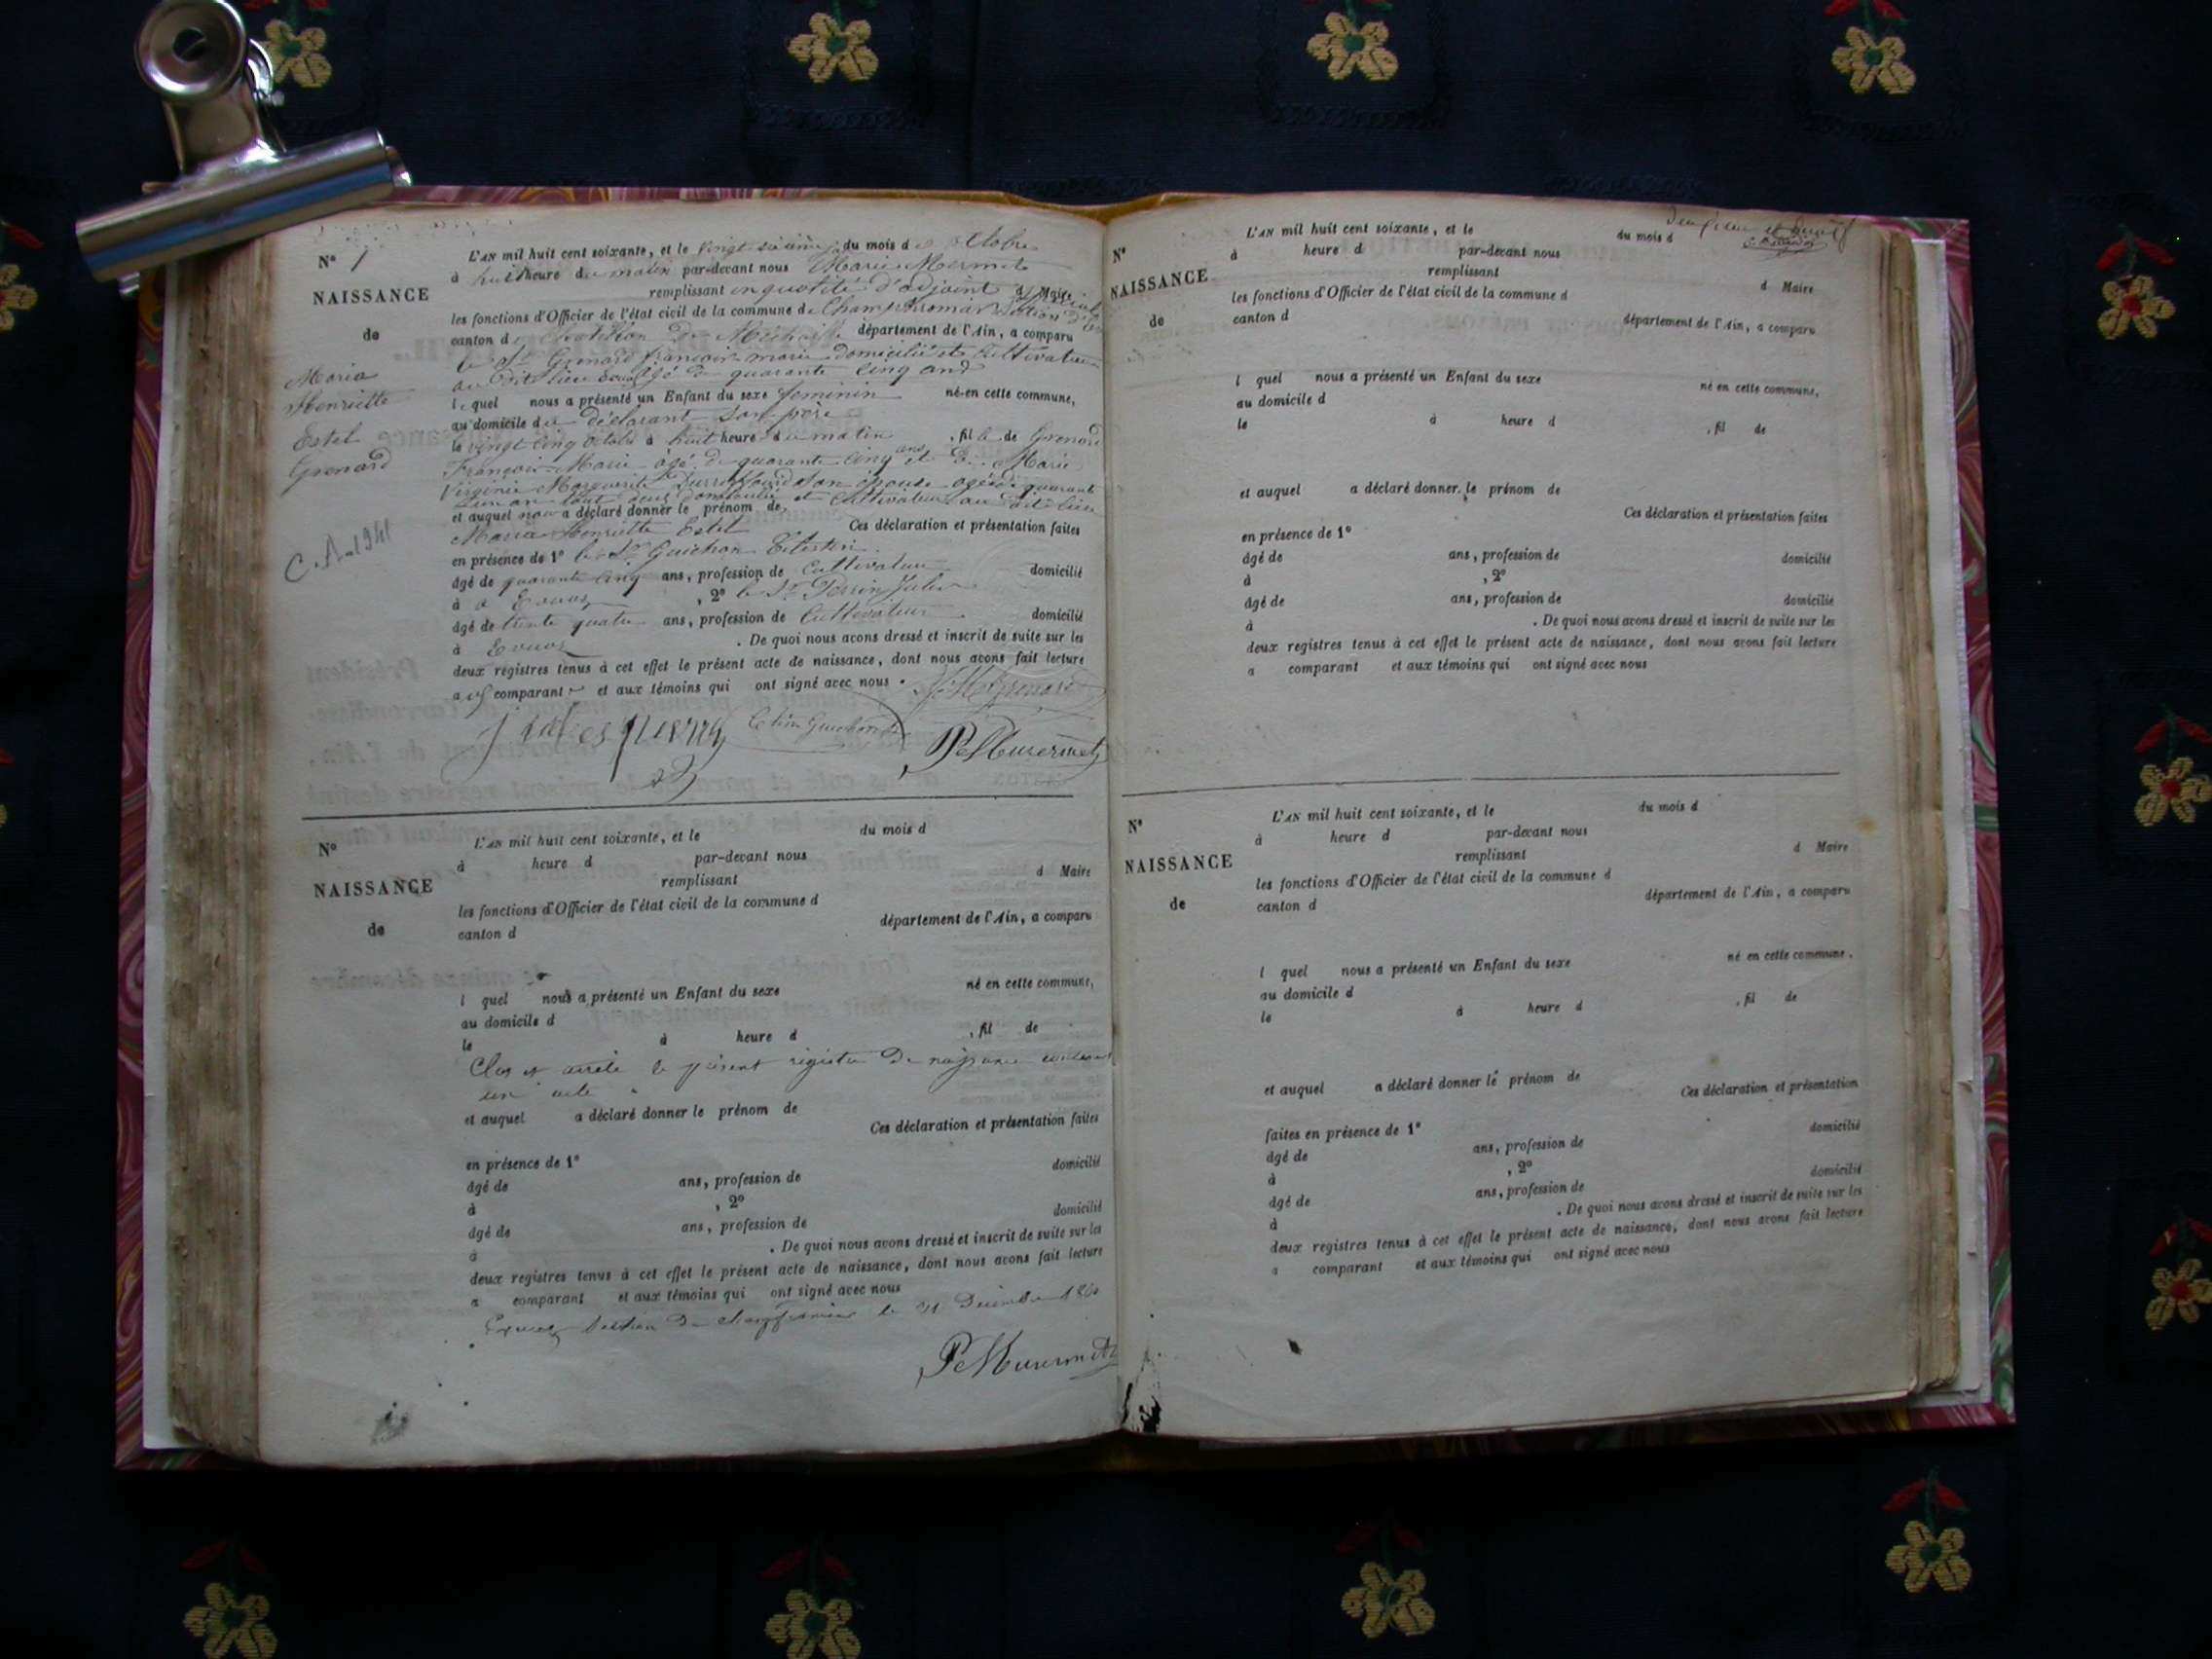 N° 1
NAISSANCE
de
Maria
Henriette
Estel
Grenard
C. A. 1941
L'AN mil huit cent soixante, et le vingt sixième du mois d'Octobre
à huit heure du matin par-devant nous Marie Mermet
remplissant en qualité d'adjoint d Maire
les fonctions d'Officier de l'état civil de la commune de Champfromier Section
canton de Chatillon de Michaille département de l'Ain, a comparu
le Sr Grenard françois marie domicilié et Cultivateur
au dit lieu âgé de quarante cinq ans
lequel nous a présenté un Enfant du sexe feminin né en cette commune,
au domicile du déclarant son père
le vingt cinq Octobre à huit heure du matin , fille de Grenard
François Marie âgé de quarante cinq ans et de Marie
Virginie Marguerite son épouse agée de quarante
un an tout deux domicilié et Cultivateur au dit lieu
et auquel nous a déclaré donner le prénom de
Maria Henriette Estel Ces déclaration et présentation faites
en présence de 1° le Sr Guichon Célestin
âgé de quarante cinq ans, profession de Cultivateur domicilié
à a Evouaz , 2° le Sr Perrin Jules
âgé de trente quatre ans, profession de Cultivateur domicilié
à Evouaz . De quoi nous avons dressé et inscrit de suite sur les
deux registres tenus à cet effet le présent acte de naissance, dont nous avons fait lecture
aux comparant et aux témoins qui ont signé avec nous .
Grenard
jules perrin
Guichon
Mermet
N°
NAISSANCE
de
L'AN mil huit cent soixante, et le du mois d
à heure d par-devant nous
remplissant d Maire
les fonctions d'Officier de l'état civil de la commune d
canton d département de l'Ain, a comparu
l quel nous a présenté un Enfant du sexe né en cette commune,
au domicile d
le à heure d , fil de
Clos et arrêté le présent registre de naissance contenant
un acte
et auquel a déclaré donner le prénom de
Ces déclaration et présentation faites
en présence de 1°
âgé de ans, profession de domicilié
à , 2°
âgé de ans, profession de domicilié
à . De quoi nous avons dressé et inscrit de suite sur les
deux registres tenus à cet effet le présent acte de naissance, dont nous avons fait lecture
a comparant et aux témoins qui ont signé avec nous
Evouaz Section de champfromier le 31 Décembre 1860
Mermet
N°
NAISSANCE
de
L'AN mil huit cent soixante, et le du mois d
à heure d par-devant nous
remplissant d Maire
les fonctions d'Officier de l'état civil de la commune d
canton d département de l'Ain, a comparu
l quel nous a présenté un Enfant du sexe né en cette commune,
au domicile d
le à heure d , fil de
et auquel a déclaré donner le prénom de
Ces déclaration et présentation faites
en présence de 1°
âgé de ans, profession de domicilié
à , 2°
âgé de ans, profession de domicilié
à . De quoi nous avons dressé et inscrit de suite sur les
deux registres tenus à cet effet le présent acte de naissance, dont nous avons fait lecture
a comparant et aux témoins qui ont signé avec nous
N°
NAISSANCE
de
L'AN mil huit cent soixante, et le du mois d
à heure d par-devant nous
remplissant d Maire
les fonctions d'Officier de l'état civil de la commune d
canton d département de l'Ain, a comparu
l quel nous a présenté un Enfant du sexe né en cette commune,
au domicile d
le à heure d , fil de
et auquel a déclaré donner le prénom de
Ces déclaration et présentation
faites en présence de 1°
âgé de ans, profession de domicilié
à , 2°
âgé de ans, profession de domicilié
à . De quoi nous avons dressé et inscrit de suite sur les
deux registres tenus à cet effet le présent acte de naissance, dont nous avons fait lecture
a comparant et aux témoins qui ont signé avec nous